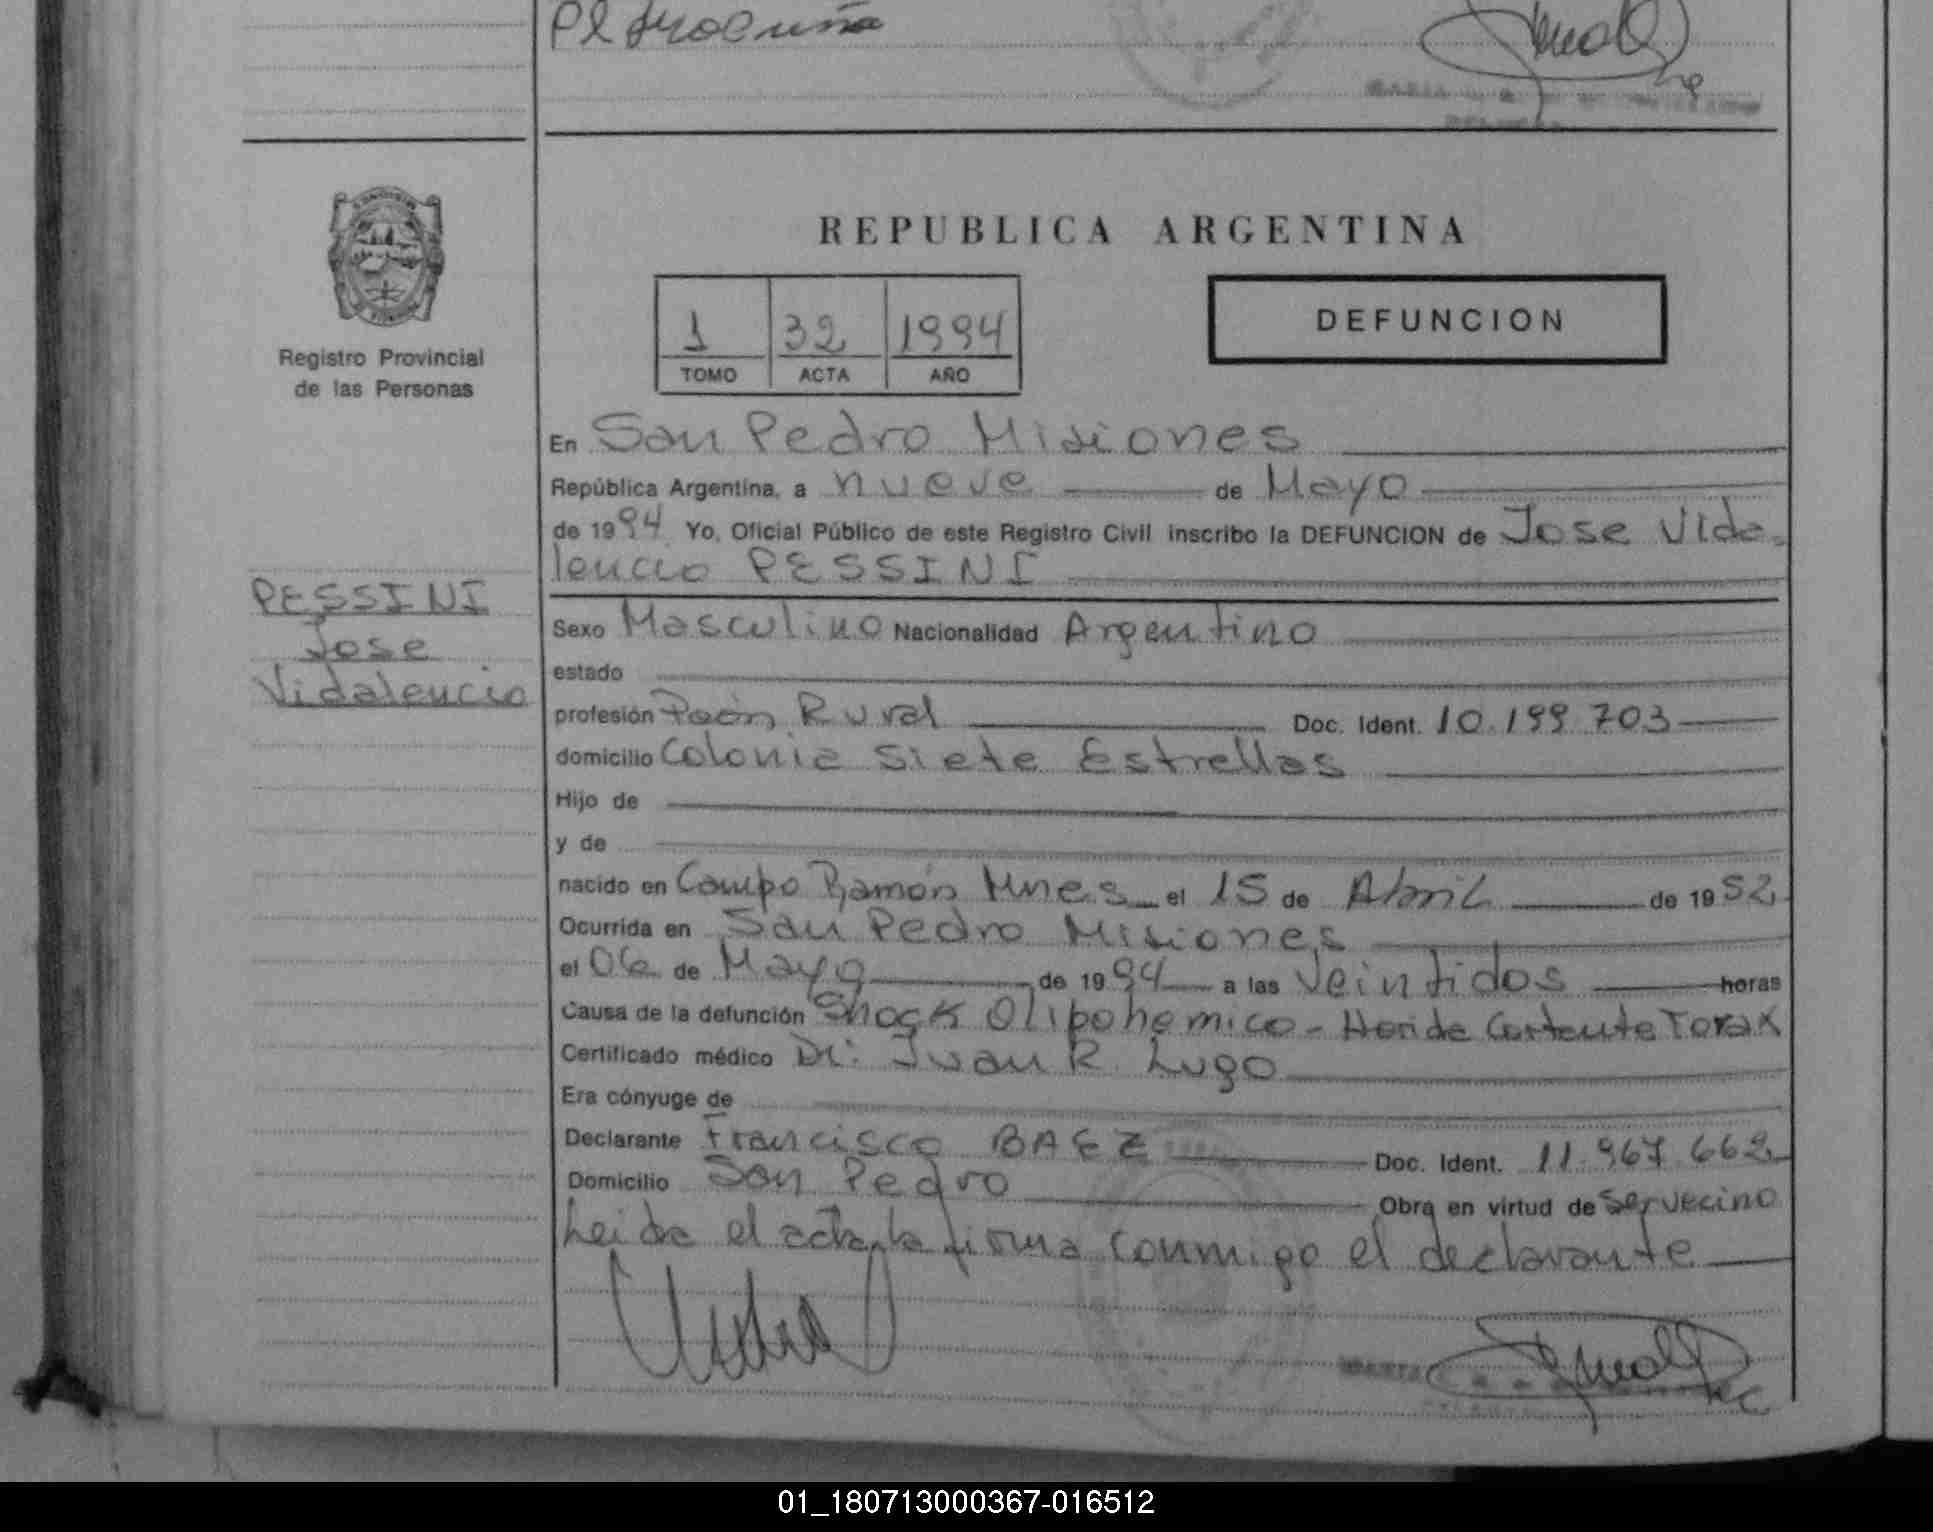 REPUBLICA ARGENTINA
1 32 1994
TOMO ACTA AÑO
DEFUNCION
Registro Provincial
de las Personas
PESSINI
Jose
Vidalencio
En San Pedro Misiones
República Argentina, a nueve de Mayo
de 1994 Yo, Oficial Público de este Registro Civil inscribo la DEFUNCION de Jose Vida-
lencio PESSINI
Sexo Masculino Nacionalidad Argentino
estado
profesión Peón Rural Doc. Ident. 10.199.703
domicilio Colonia Siete Estrellas
Hijo de
y de
nacido en Campo Ramón Mnes el 15 de Abril de 1952
Ocurrida en San Pedro Misiones
el 06 de Mayo de 1994 a las Veintidos horas
Causa de la defunción Shock Olipohemico - Herida Cortante Torax
Certificado médico Dr: Juan R. Lugo
Era cónyuge de
Declarante Francisco BAEZ Doc. Ident. 11.967.662
Domicilio San Pedro Obra en virtud de ser vecino
Leida el acta, la firma conmigo el declarante
01_180713000367-016512